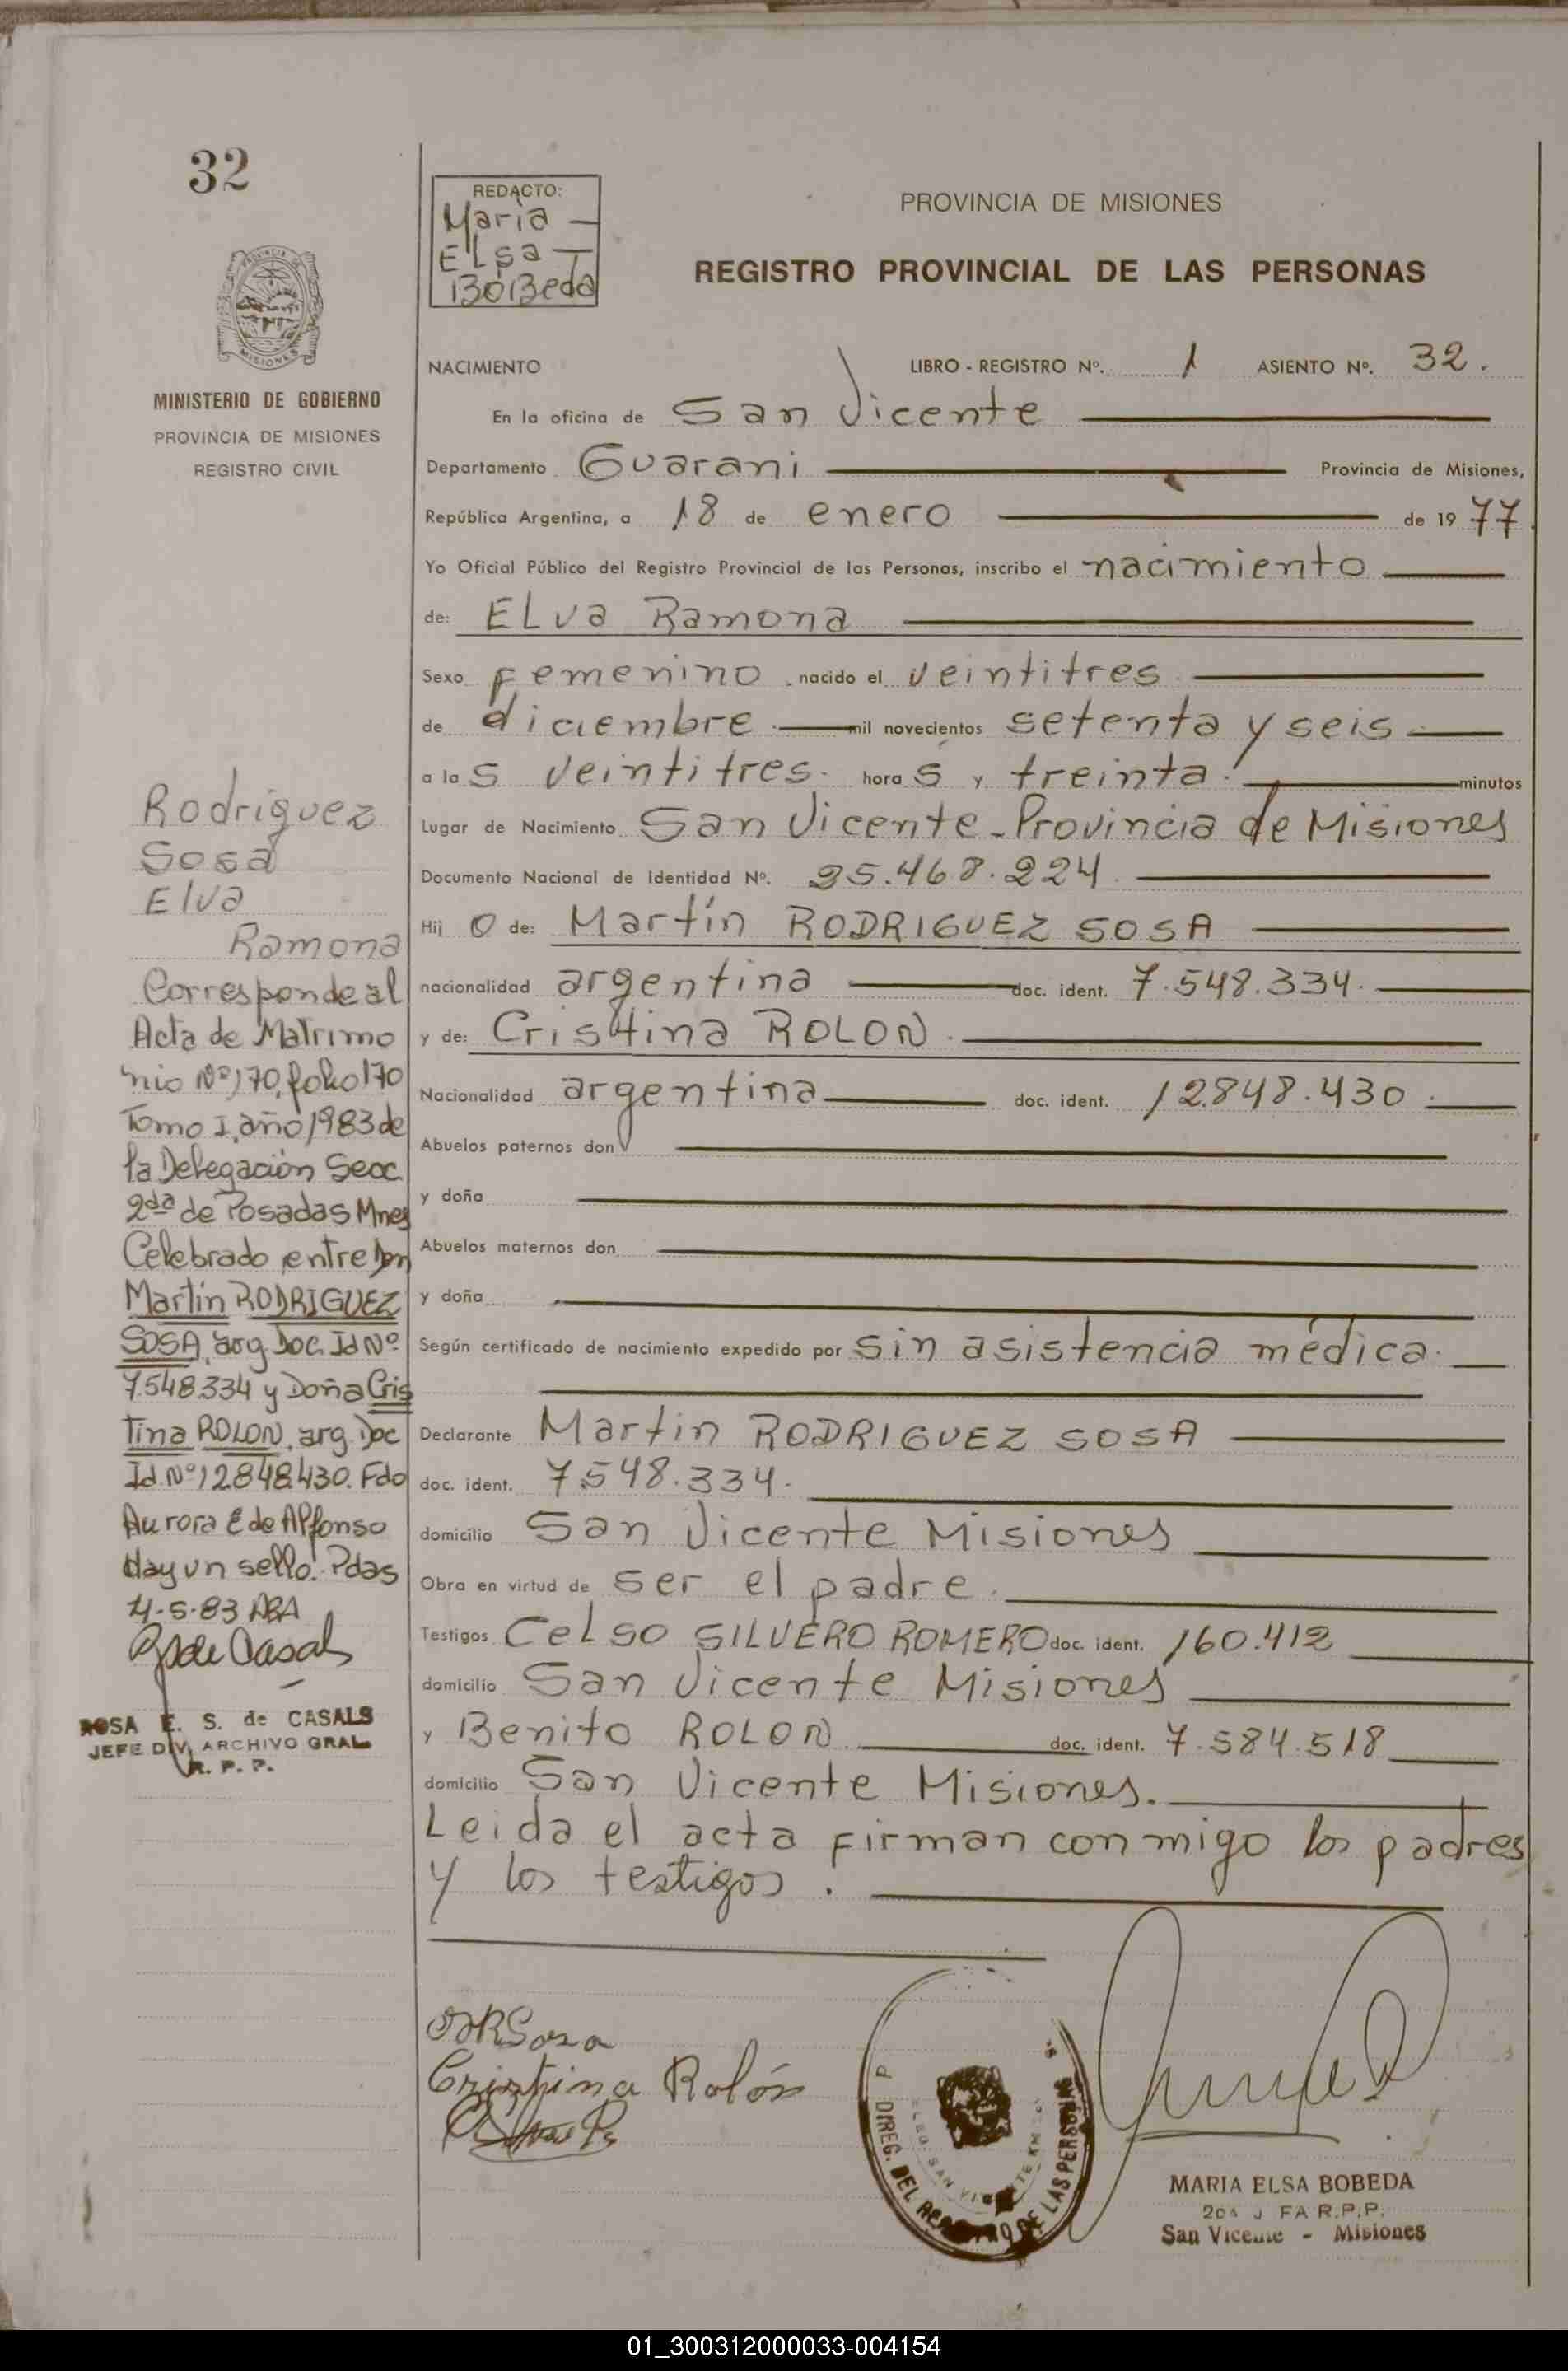 32
REDACTO:
Maria
Elsa
Bobeda
PROVINCIA DE MISIONES
REGISTRO PROVINCIAL DE LAS PERSONAS
PROVINCIA DE
MISIONES
MINISTERIO DE GOBIERNO
PROVINCIA DE MISIONES
REGISTRO CIVIL
NACIMIENTO LIBRO - REGISTRO Nº. 1 ASIENTO Nº. 32.
En la oficina de San Vicente
Departamento Guarani Provincia de Misiones,
República Argentina, a 18 de enero de 1977
Yo Oficial Público del Registro Provincial de las Personas, inscribo el nacimiento
de: Elva Ramona
Sexo femenino nacido el veintitres
de diciembre mil novecientos setenta y seis
a las veintitres hora s y treinta minutos
Lugar de Nacimiento San Vicente - Provincia de Misiones
Documento Nacional de Identidad Nº. 25.468.224
Hij o de: Martín RODRIGUEZ SOSA
nacionalidad argentina doc. ident. 7.548.334.
y de: Cristina ROLON
Nacionalidad argentina doc. ident. 12848.430
Abuelos paternos don
y doña
Abuelos maternos don
y doña
Según certificado de nacimiento expedido por sin asistencia médica.
Declarante Martin RODRIGUEZ SOSA
doc. ident. 7.548.334.
domicilio San Vicente Misiones
Obra en virtud de ser el padre.
Testigos Celso SILVERO ROMERO doc. ident. 160.412
domicilio San Vicente Misiones
y Benito ROLON doc. ident. 7.584.518
domicilio San Vicente Misiones.
Leida el acta firman conmigo los padres
y los testigos.
Rodriguez
Sosa
Elva
Ramona
Corresponde al
Acta de Matrimo
nio Nº 170, folio 170
Tomo I, año 1983 de
la Delegación Secc.
2da de Posadas Mnes
Celebrado entre Don
Martin RODRIGUEZ
SOSA, arg Doc. Id Nº
7.548.334 y Doña Cris
tina ROLON, arg. Doc
Id. Nº 12848.430. Fdo
Aurora E de Alfonso
Hay un sello. Pdas
4-5-83
R S de Casals
ROSA E. S. de CASALS
JEFE DIV. ARCHIVO GRAL
R. P. P.
MRSosa
Cristina Rolón
DIREG. DEL REGISTRO DE LAS PERSONAS
SAN VICENTE
MARIA ELSA BOBEDA
FA R.P.P.
San Vicente - Misiones
01_300312000033-004154